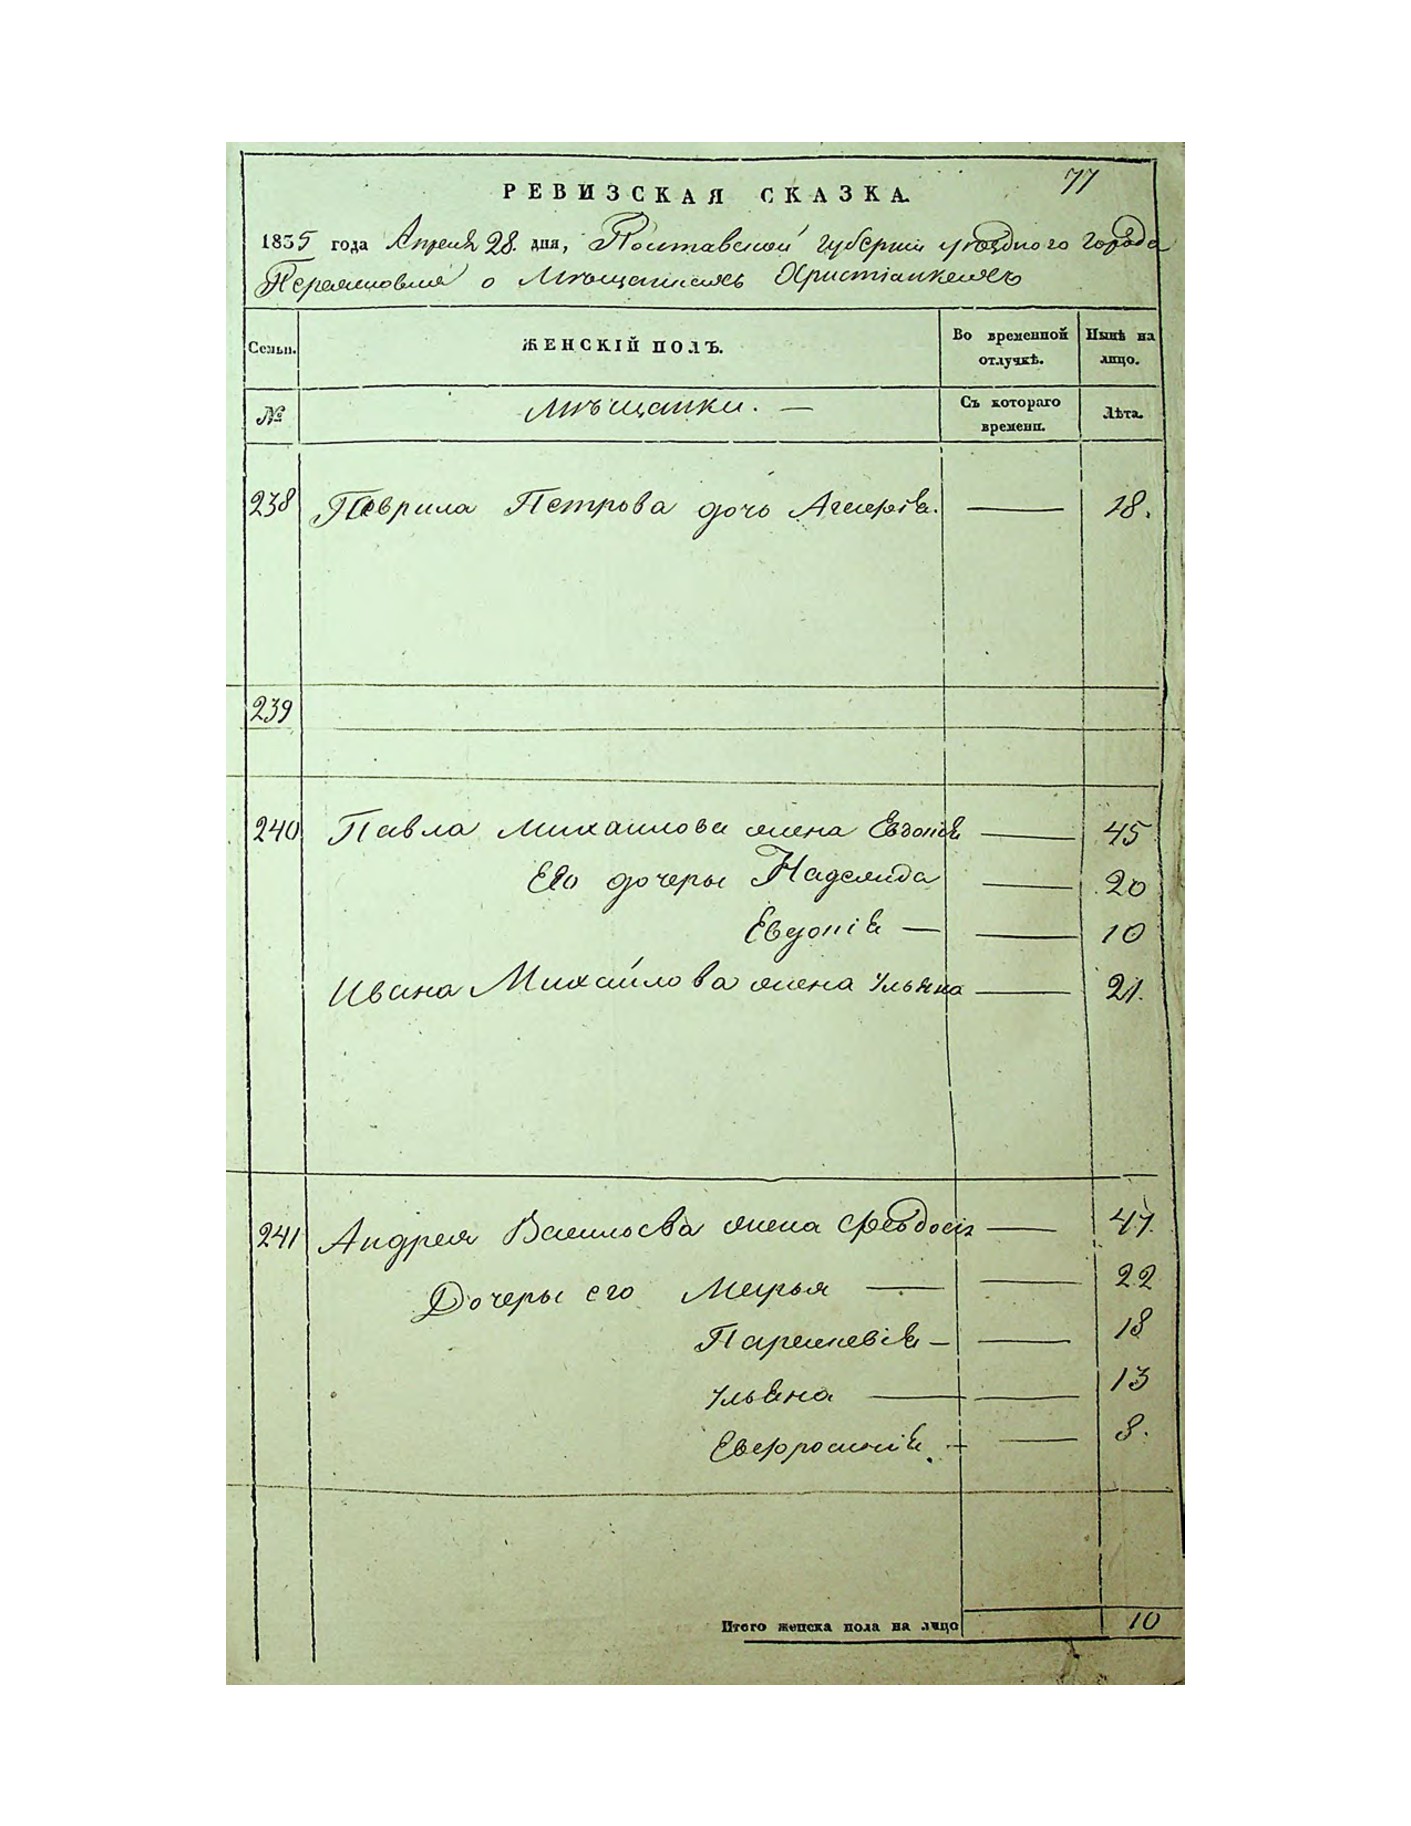 77
РЕВИЗСКАЯ СКАЗКА.
1835 года Апреля 28. дня, Полтавской губернии уѣздного города
Переяславля о Мѣщанахъ Христіанскихъ
Семьи. ЖЕНСКІЙ ПОЛЪ. Во временной отлучкѣ. Нынѣ на лицо.
№ Мѣщанки. — Съ котораго времени. Лѣта.
238 Гаврила Петрова дочь — 18.
239
240 Павла Михайлова жена Евдокія — 45
Его дочеры Надежда — 20
Евдокія — — 10
Ивана Михайлова жена Ульяна — 21.
241 Андрея Васильева жена Феодосія — 47.
Дочеры его Марья — — 22
Параскевія — — 18
Ульяна — — 13
Евфросинія — — 8.
Итого женска пола на лицо 10